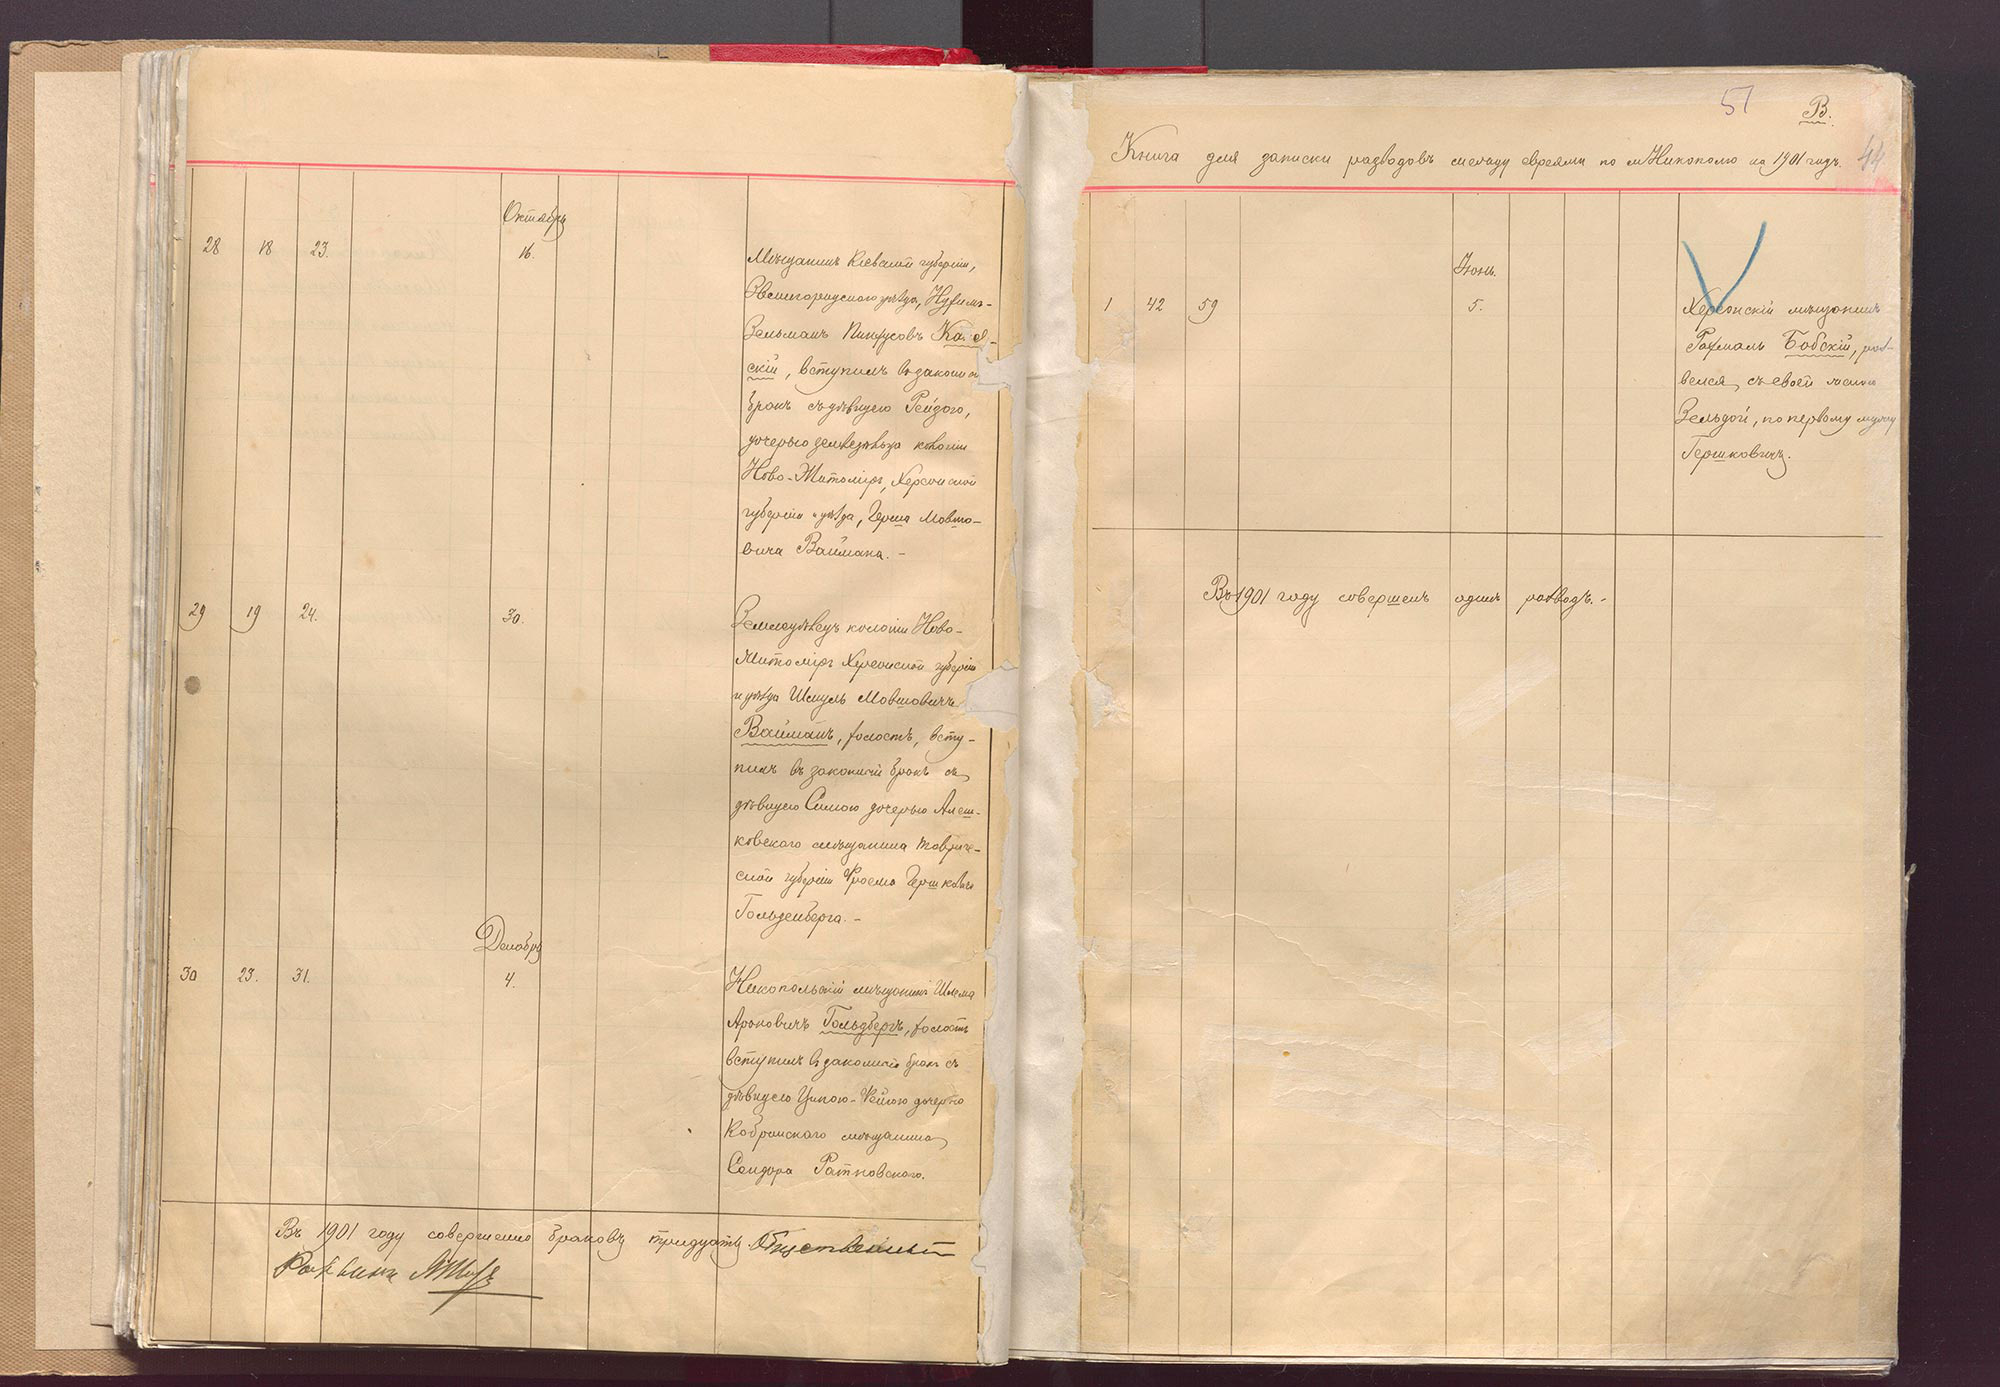 Октябрь
28 18 23. 16.
Мѣщанинъ Кіевской губерніи,
Звенигородскаго уѣзда, Нухимъ-
Зельманъ Пинхусовъ
скій, вступилъ въ законный
бракъ съ дѣвицею Рейзою,
дочерью земледѣльца колоніи
Ново-Житоміръ, Херсонской
губерніи и уѣзда, Герша Мовшо-
вича Ваймана. -
29 19 24. 30.
Земледѣлецъ колоніи Ново-
Житоміръ Херсонской губерніи
и уѣзда Шмуль Мовшовичъ
Вайманъ, холостъ, всту-
пилъ въ законный бракъ съ
дѣвицею Симою дочерью Алеш-
ковского мѣщанина Тавриче-
ской губерніи Фроема Гершковича
Гольденберга. -
Декабрь
30 23. 31. 4.
Никопольскій мѣщанинъ Шлема
Ароновичъ Гольдбергъ, холостъ
вступилъ въ законный бракъ съ
дѣвицею Ципою-Фейгою дочерью
Кобринскаго мѣщанина
Сендера Ратновского.
Въ 1901 году совершено браковъ тридцать. Общественный
Раввинъ
51 В.
44
Книга для записки разводовъ между евреями по м Никополю на 1901 годъ.
Іюнь.
1 42 59 5.
Херсонскій мѣщанинъ
Рахмаль Бобскій, раз-
велся съ своей женою
Зельдой, по первому мужу
Гершковичъ.
Въ 1901 году совершенъ одинъ разводъ. -